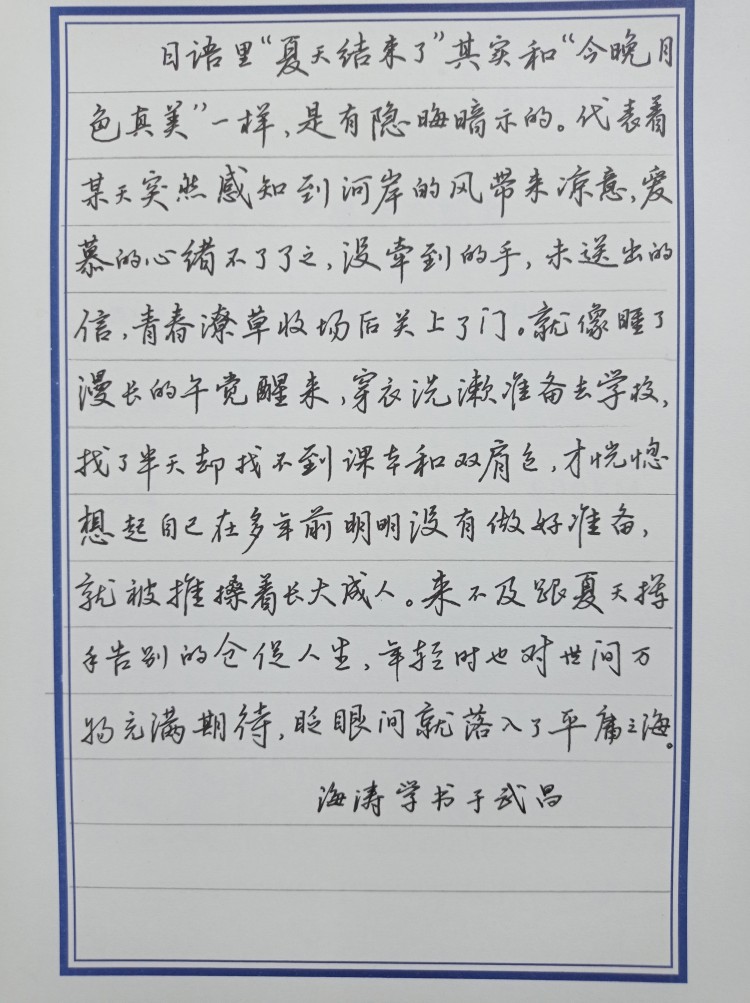 日语里“夏天结来了”其实和“今晚月
色真美”一样,是有隐晦暗示的。代表着
某天突然感知到河岸的风带来凉意,爱
慕的心绪不了了之,没牵到的手,未送出的
信,青春潦草收场后关上了门。就像睡了
漫长的午觉醒来,穿衣洗漱准备去学校,
找了半天却找不到课本和双肩包,才恍惚
想起自己在多年前明明没有做好准备,
就被推搡着长大成人。来不及跟夏天挥
手告别的仓促人生,年轻时也对世间万
物充满期待,眨眼间就落入了平庸之海。
海涛学书于武昌